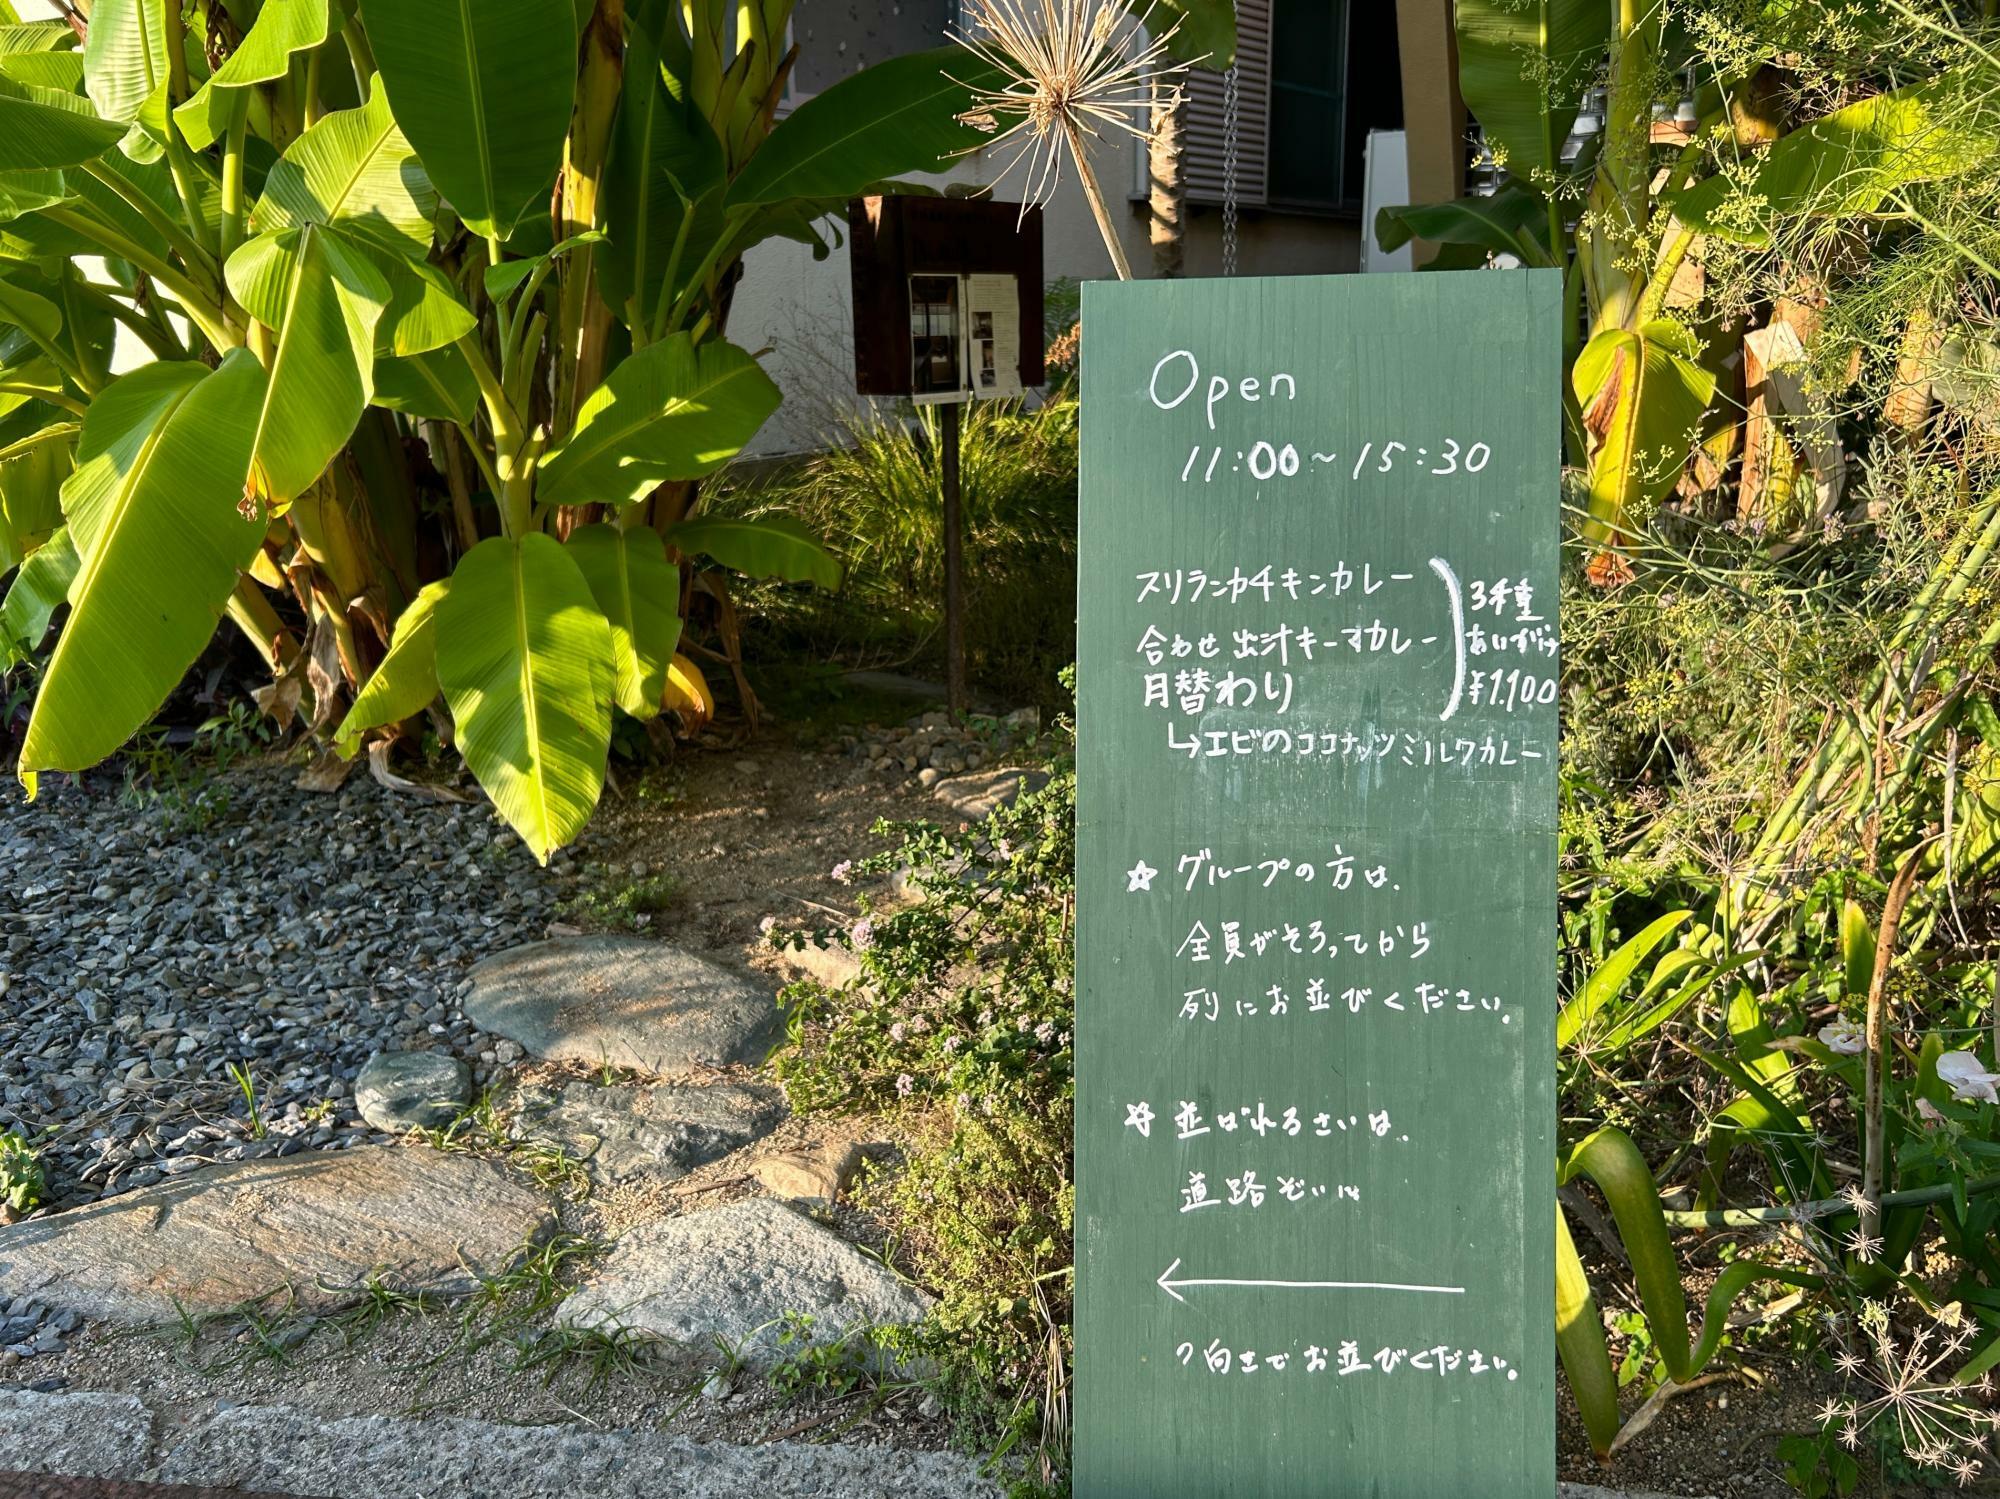 Open
11:00~15:30
スリランカチキンカレー
合わせ出汁キーマカレー
月替わり
↳エビのココナッツミルクカレー
3種
あいがけ
¥1,100
☆グループの方は、
全員がそろってから
列にお並びください。
☆並ばれるさいは、
道路ぞいに
←
の向きでお並びください。